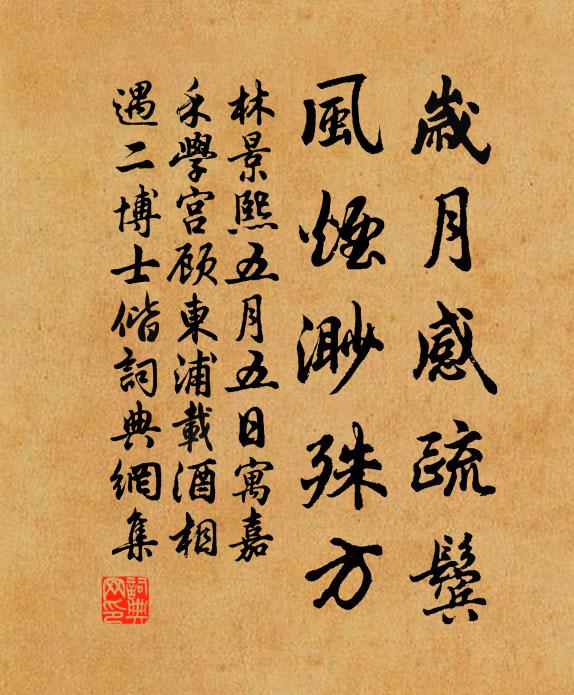 歲月感疏鬓
風煙渺殊方
林景熙五月五日寓嘉
禾學宮顾東浦載酒相
遇二博士偕詞典網集
詞典網印